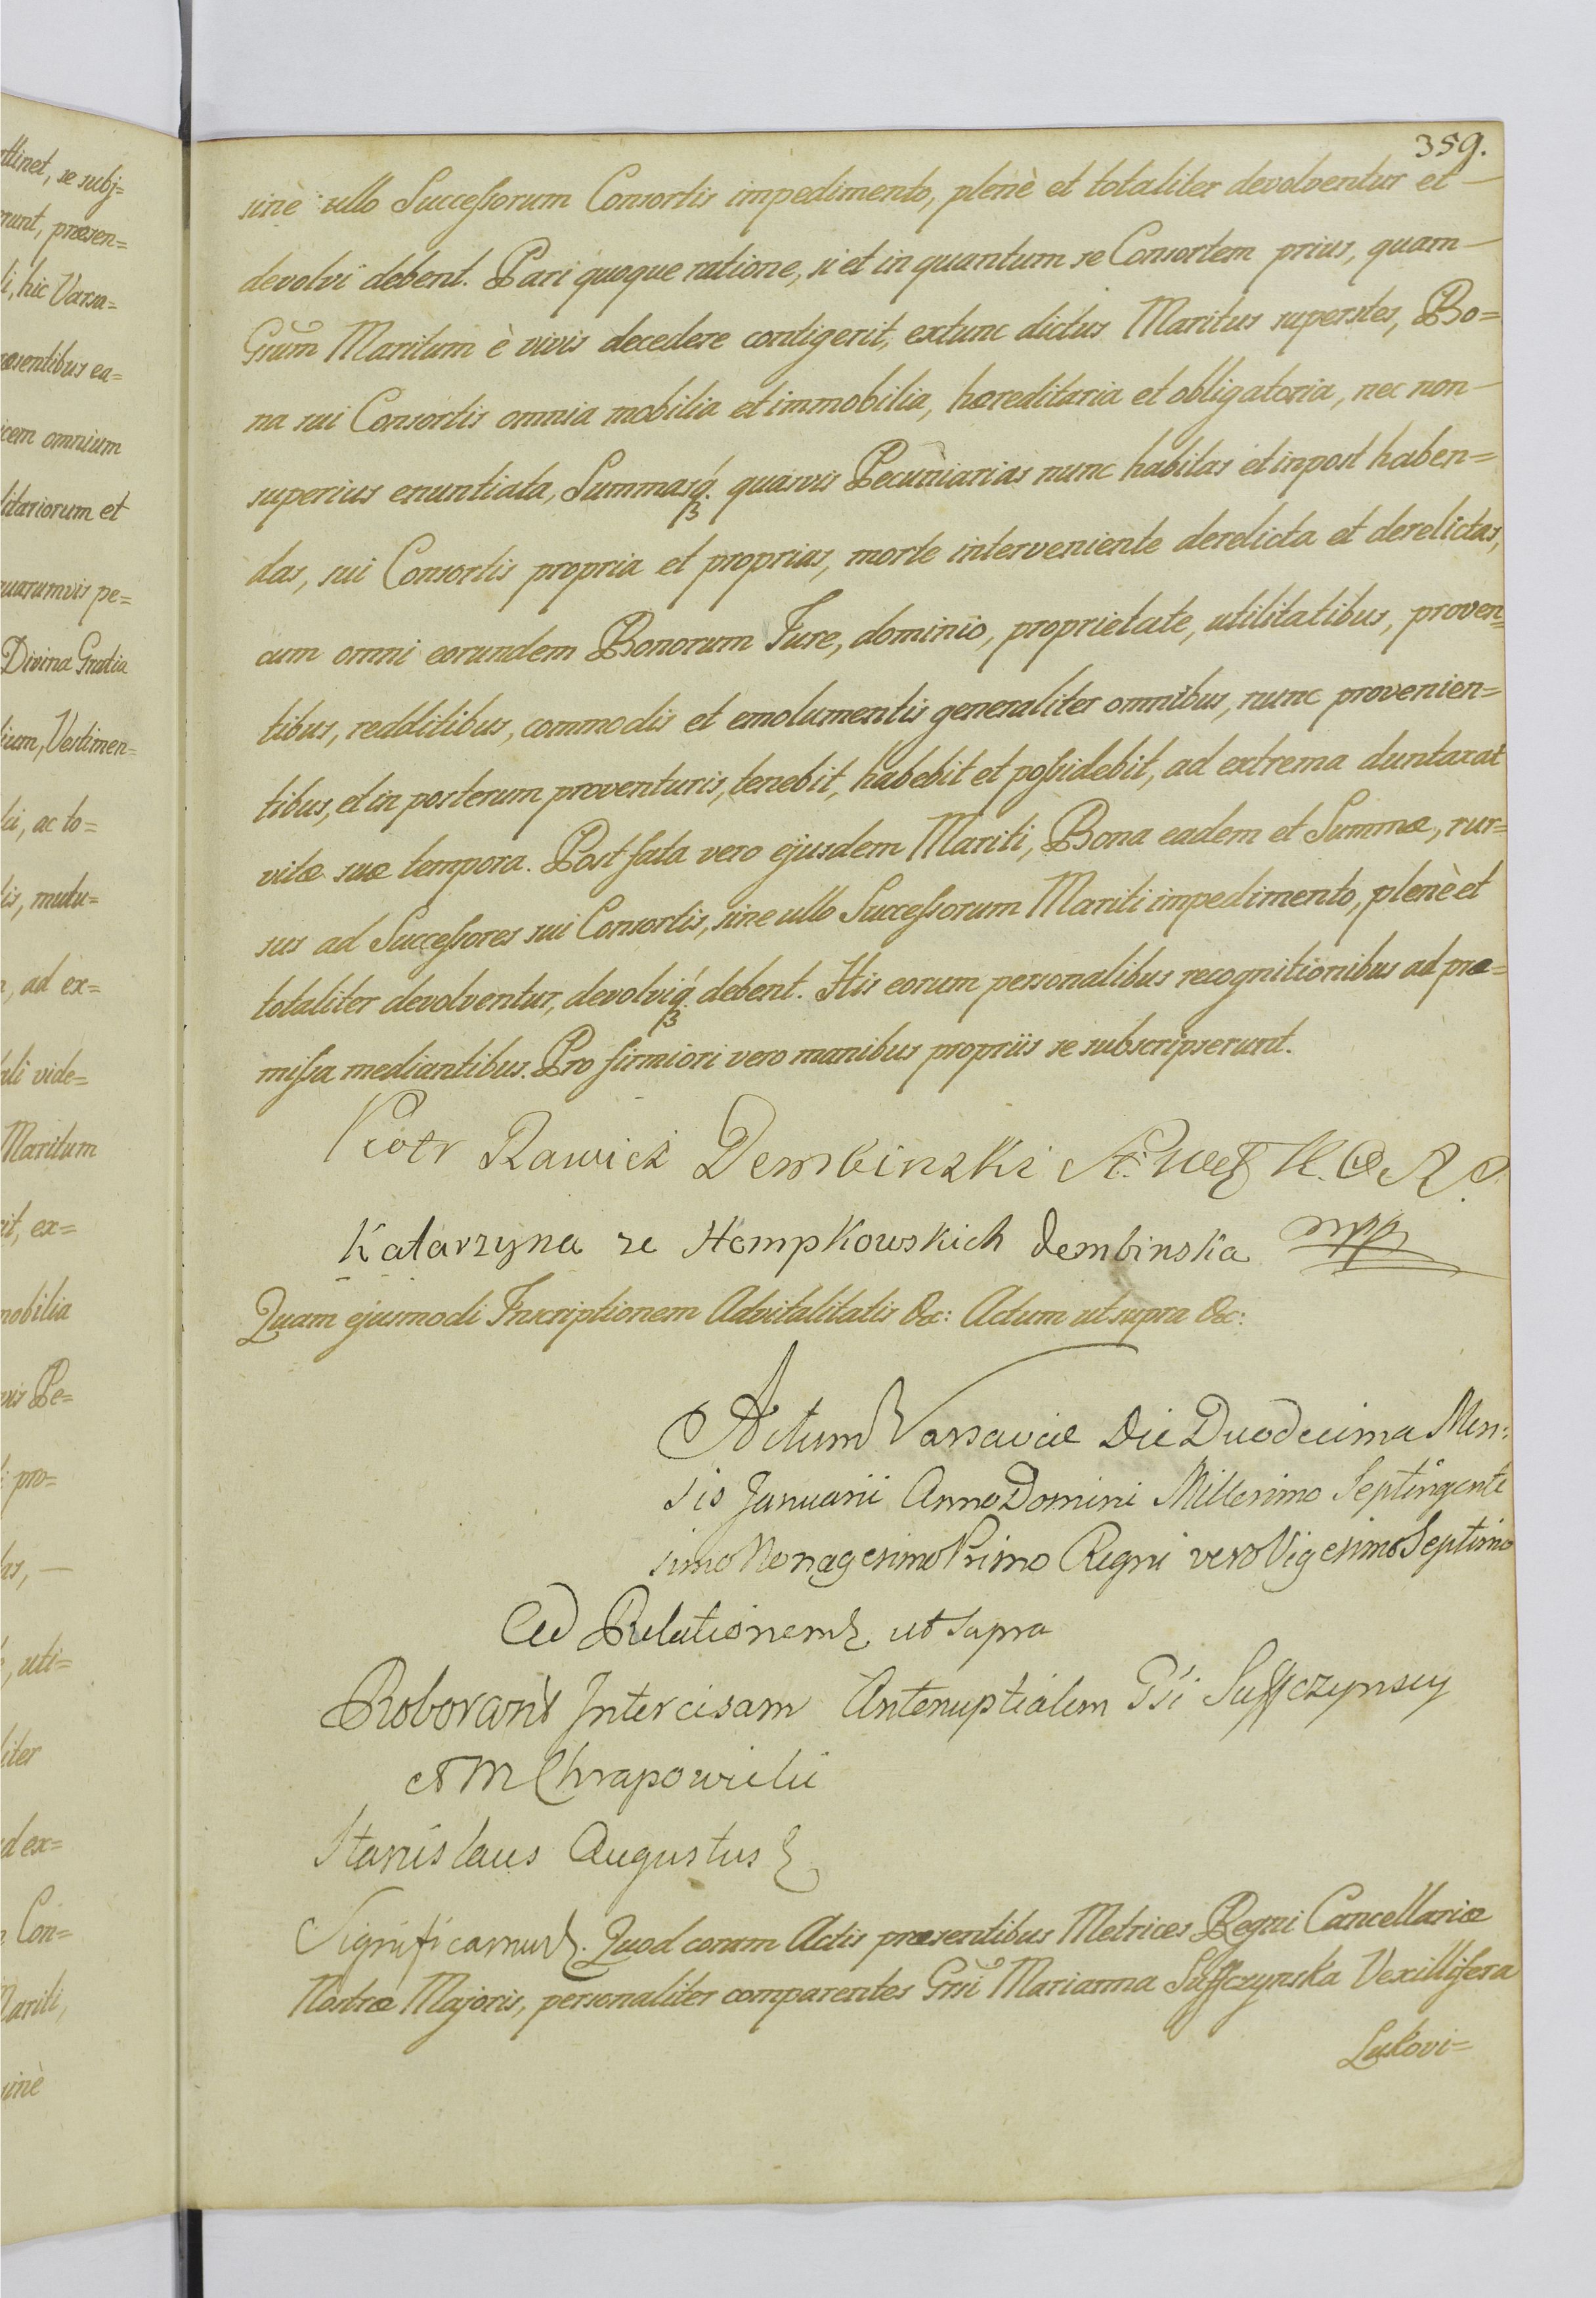 359.
ttinet, se subj=
runt, præsen=
li, hic Varsa=
æsentibus ea=
icem omnium
ditariorum et
uarumvis pe=
Divina Gratia
lium, Vestimen=
lii, ac to=
lis, mutu=
n, ad ex=
ali vide=
Maritum
rit, ex=
mobilia
vis Pe=
i pro=
las, —
é, uti=
liter
ad ex=
n Con=
Mariti,
sinè
sinè ullo Successorum Consortis impedimento, plenè et totaliter devolventur et —
devolvi debent. Pari quoque ratione, si et in quantum se Consortem prius, quam —
Gsum Maritum è vivis decedere contigerit, extunc dictus Maritus superstes, Bo=
na sui Consortis omnia mobilia et immobilia, hæreditaria et obligatoria, nec non —
superius enuntiata, Summasq́. quasvis Pecuniarias nunc habitas et inpost haben=
das, sui Consortis propria et proprias, morte interveniente derelicta et derelictas,
cum omni eorundem Bonorum Jure, dominio, proprietate, utilitatibus, proven=
tibus, redditibus, commodis et emolumentis generaliter omnibus, nunc provenien=
tibus, et in posterum proventuris, tenebit, habebit et possidebit, ad extrema duntaxat
vitæ suæ tempora. Post fata vero ejusdem Mariti, Bona eadem et Summæ, rur=
sus ad Successores sui Consortis, sine ullo Successorum Mariti impedimento, plenè et
totaliter devolventur, devolviq́. debent. His eorum personalibus recognitionibus ad præ=
missa mediantibus. Pro firmiori vero manibus propriis se subscripserunt.
Piotr Rawicz Dembinski
Katarzyna ze Hempkowskich Dembinska mpp
Quam ejusmodi Inscriptionem Advitalitatis &c: Actum ut supra &c:
Actum Varsaviæ Die Duodecima Men:
sis Januarii Anno Domini Millesimo Septingente
simo Nonagesimo Primo Regni vero Vigesimo Septimo
Ad Relationem ut supra
Roborant Intercisam Antenuptialem Gsi Suffczynscy
et M Chrapowicki
Stanislaus Augustus
Significamus. Quod coram Actis præsentibus Metrices Regni Cancellariæ
Nostræ Majoris, personaliter comparentes Grsi Marianna Suffczynska Vexillifera
Lukovi=